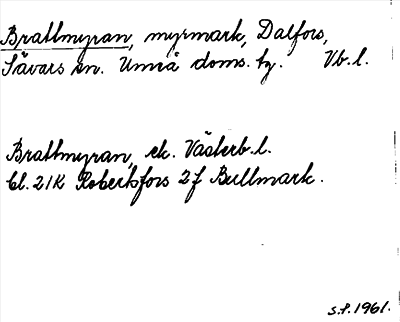 Brattmyran, myrmark, Dalfors,
Sävars sn. Umeå doms. tg. Vb.l.
Brattmyran, ek. Västerb.l.
bl. 21K Robertsfors 2f Bullmark.
s.f. 1961.